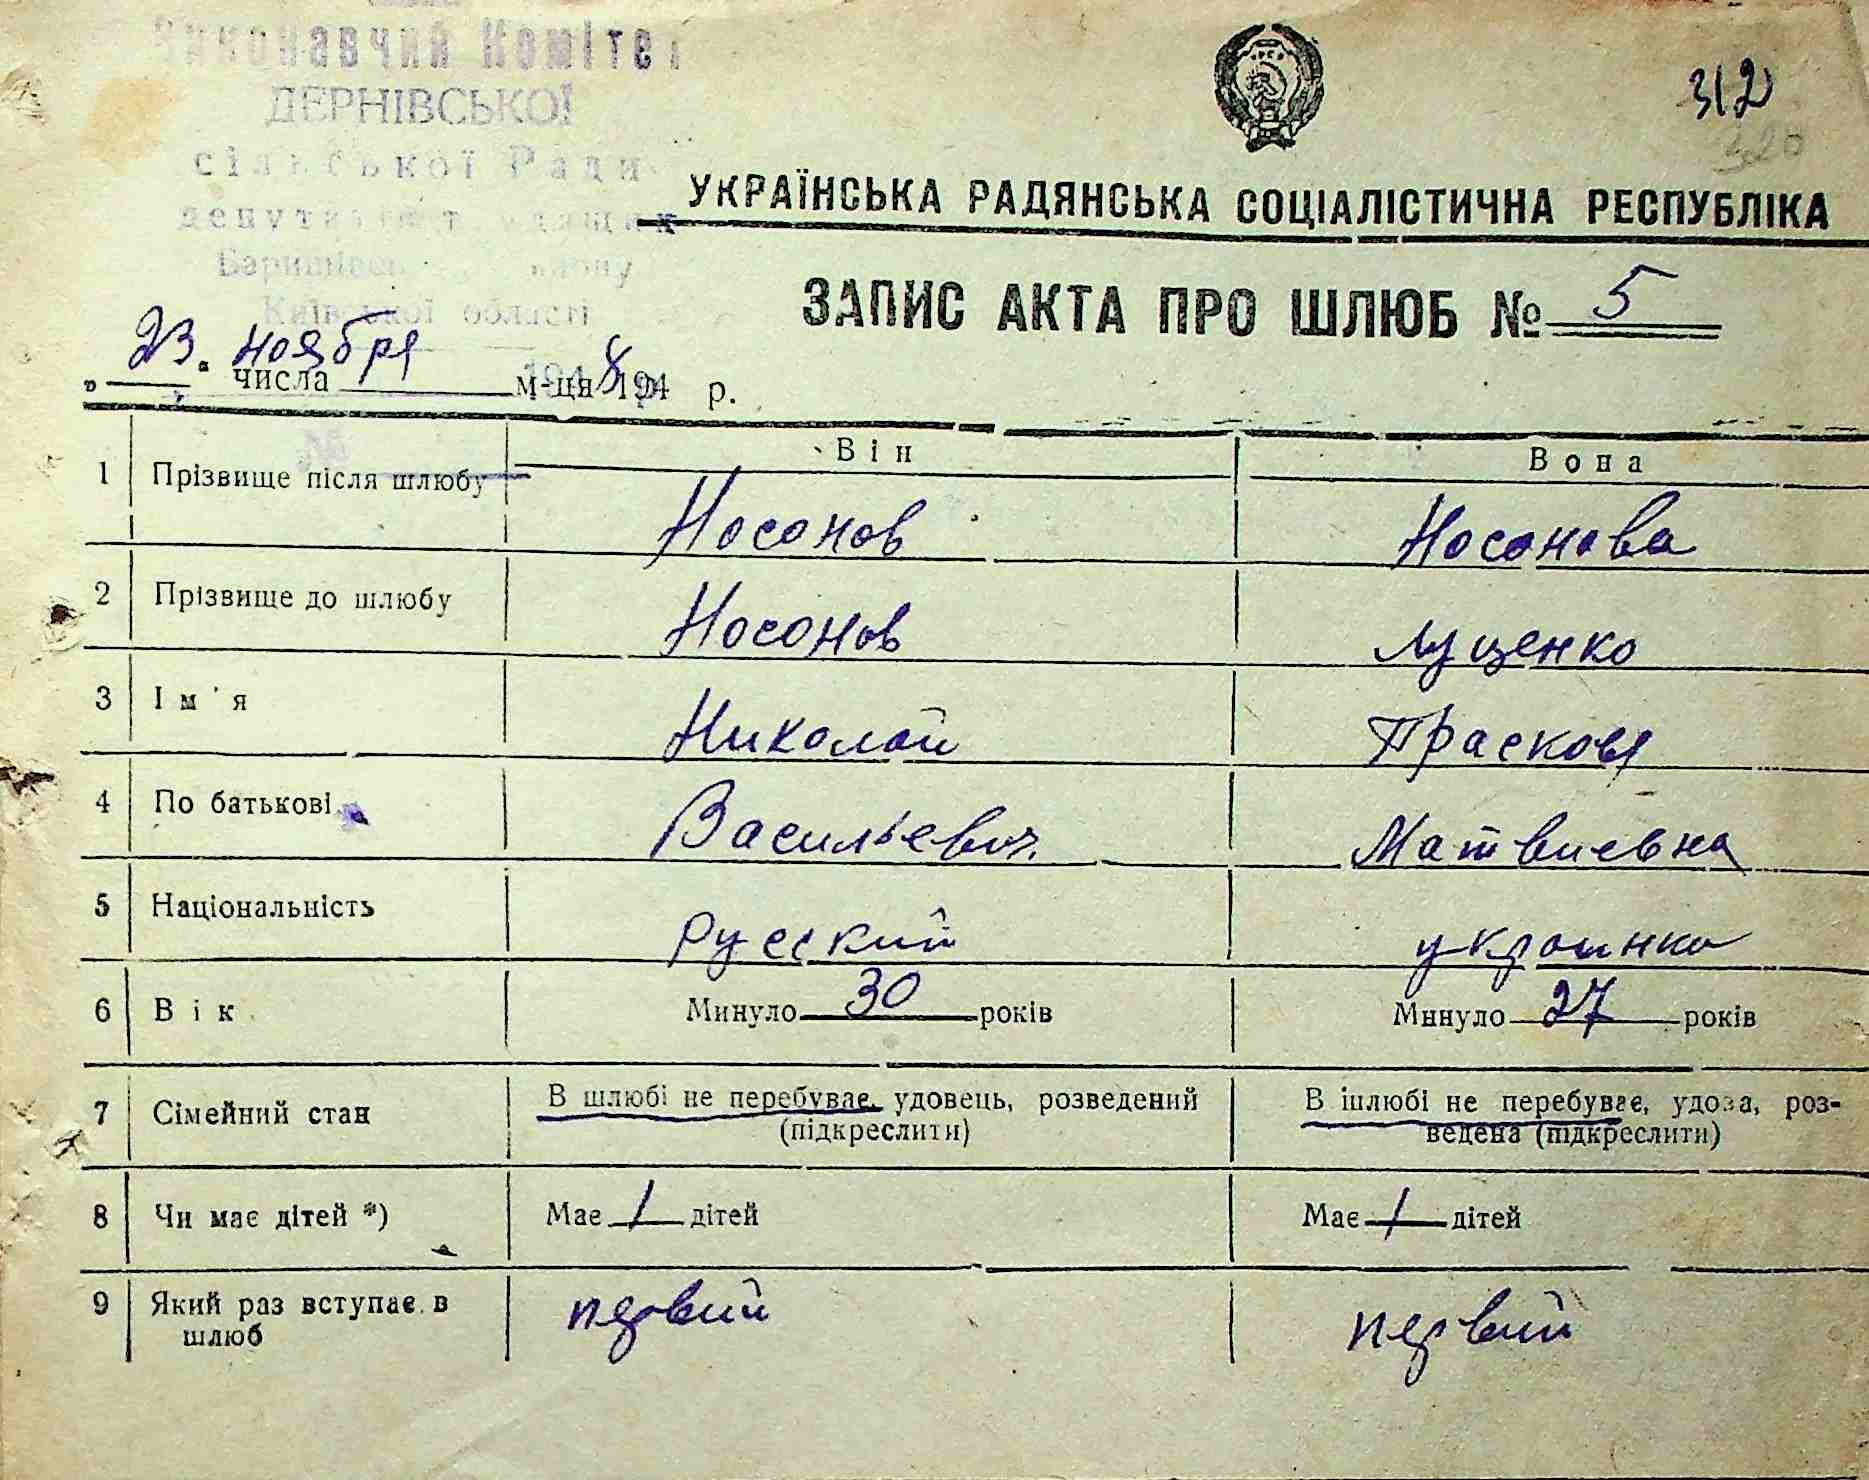 Виконавчий Комітет
ДЕРНІВСЬКОЇ
сільської Ради
депутатів трудящих
Баришівського району
Київської області
312
320
УКРАЇНСЬКА РАДЯНСЬКА СОЦІАЛІСТИЧНА РЕСПУБЛІКА
ЗАПИС АКТА ПРО ШЛЮБ № 5
„23“ числа ноября м-ця 1948 р.
№
Він Вона
1 Прізвище після шлюбу Носонов Носонова
2 Прізвище до шлюбу Носонов Луценко
3 Ім'я Николай Прасковя
4 По батькові Васильевич Матвиевна
5 Національність русский украинка
6 Вік Минуло 30 років Минуло 27 років
7 Сімейний стан В шлюбі не перебуває, удовець, розведений (підкреслити) В шлюбі не перебуває, удова, роз-
ведена (підкреслити)
8 Чи має дітей *) Має 1 дітей Має 1 дітей
9 Який раз вступає в первий первий
шлюб